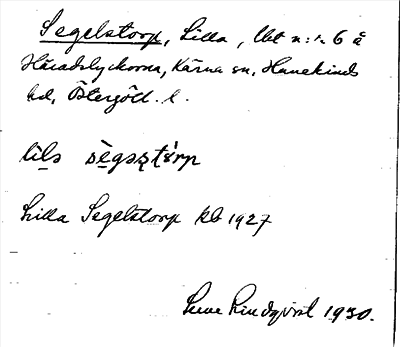 Segelstorp, Lilla, lht n:r 6 å
Häradslyckorna, Kärna sn, Hanekinds
hd, Östergötl. l.
lils sègsstòrp
Lilla Segelstorp kb 1927
Sune Lindqvist 1930.